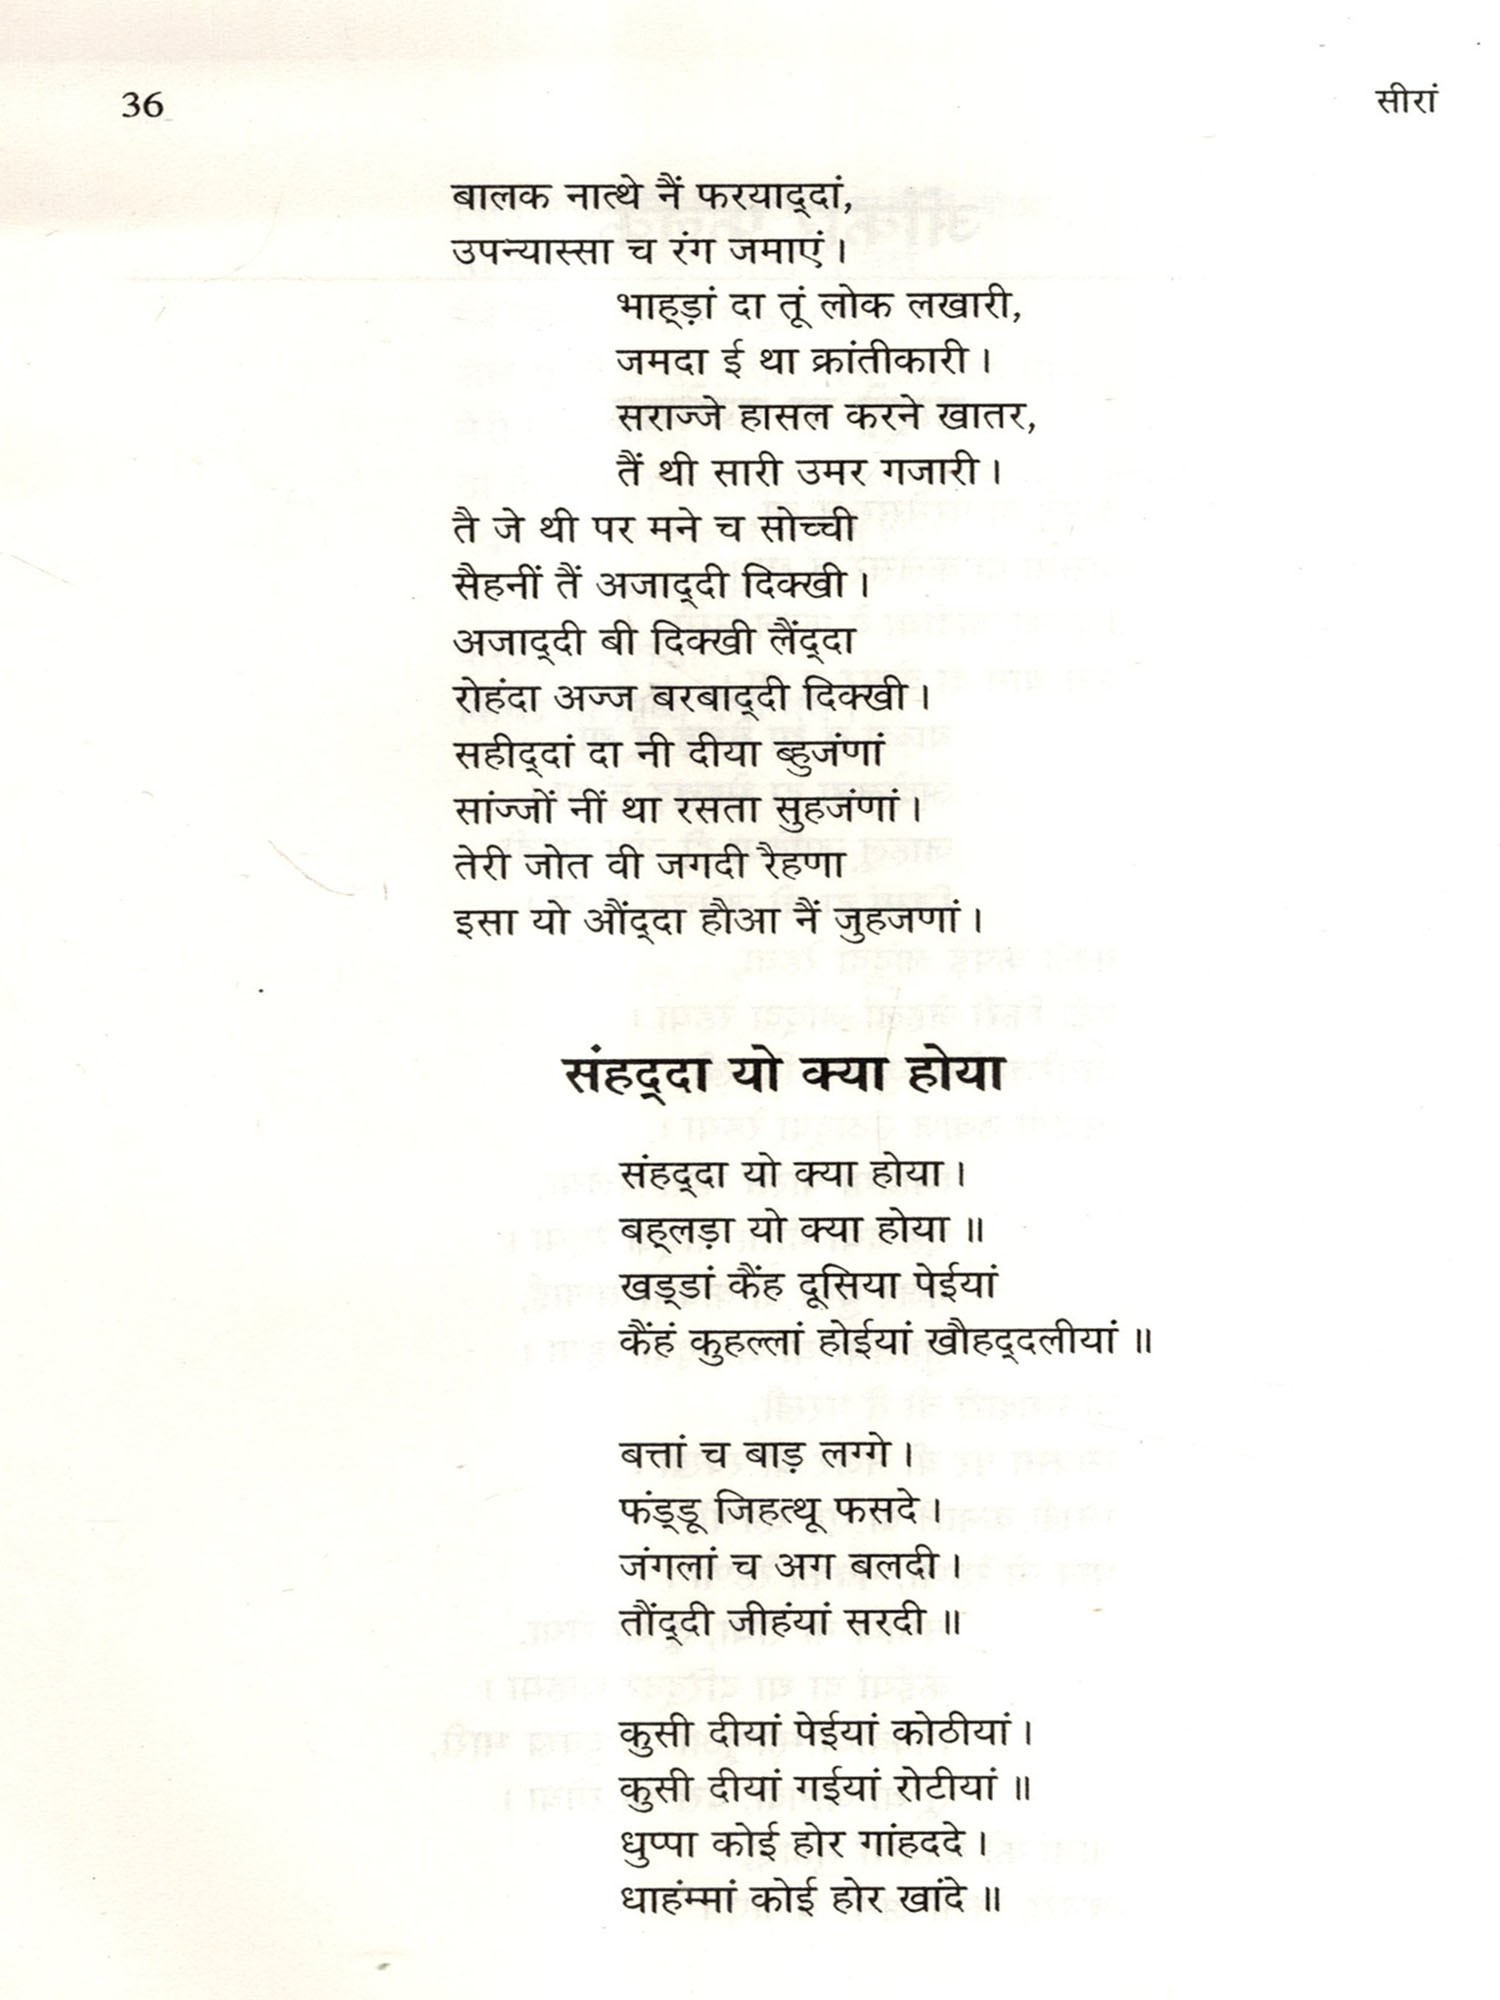 36
सीरां
बालक नात्थे नैं फरयाद्‌दां,
उपन्यास्सा च रंग जमाएं।
भाह्‌ड़ां दा तूं लोक लखारी,
जमदा ई था क्रांतीकारी।
सराज्जे हासल करने खातर,
तैं थी सारी उमर गजारी।
तै जे थी पर मने च सोच्ची
सैहनीं तैं अजाद्‌दी दिक्खी।
अजाद्‌दी बी दिक्खी लैंद्‌दा
रोहंदा अज्ज बरबाद्‌दी दिक्खी।
सहीद्‌दां दा नी दीया ब्हुजंणां
सांज्जों नीं था रसता सुहजंणां।
तेरी जोत वी जगदी रैहणा
इसा यो औंद्‌दा हौआ नैं जुहजणां।
संहद्‌दा यो क्या होया
संहद्‌दा यो क्या होया।
बह्‌लड़ा यो क्या होया॥
खड्‌डां कैंह दूसिया पेईयां
कैंहं कुहल्लां होईयां खौहद्‌दलीयां॥
बत्तां च बाड़ लग्गे।
फंड्‌डू जिहत्थू फसदे।
जंगलां च अग बलदी।
तौंद्‌दी जीहंयां सरदी॥
कुसी दीयां पेईयां कोठीयां।
कुसी दीयां गईयां रोटीयां॥
धुप्पा कोई होर गांहददे।
धाहंम्मां कोई होर खांदे॥